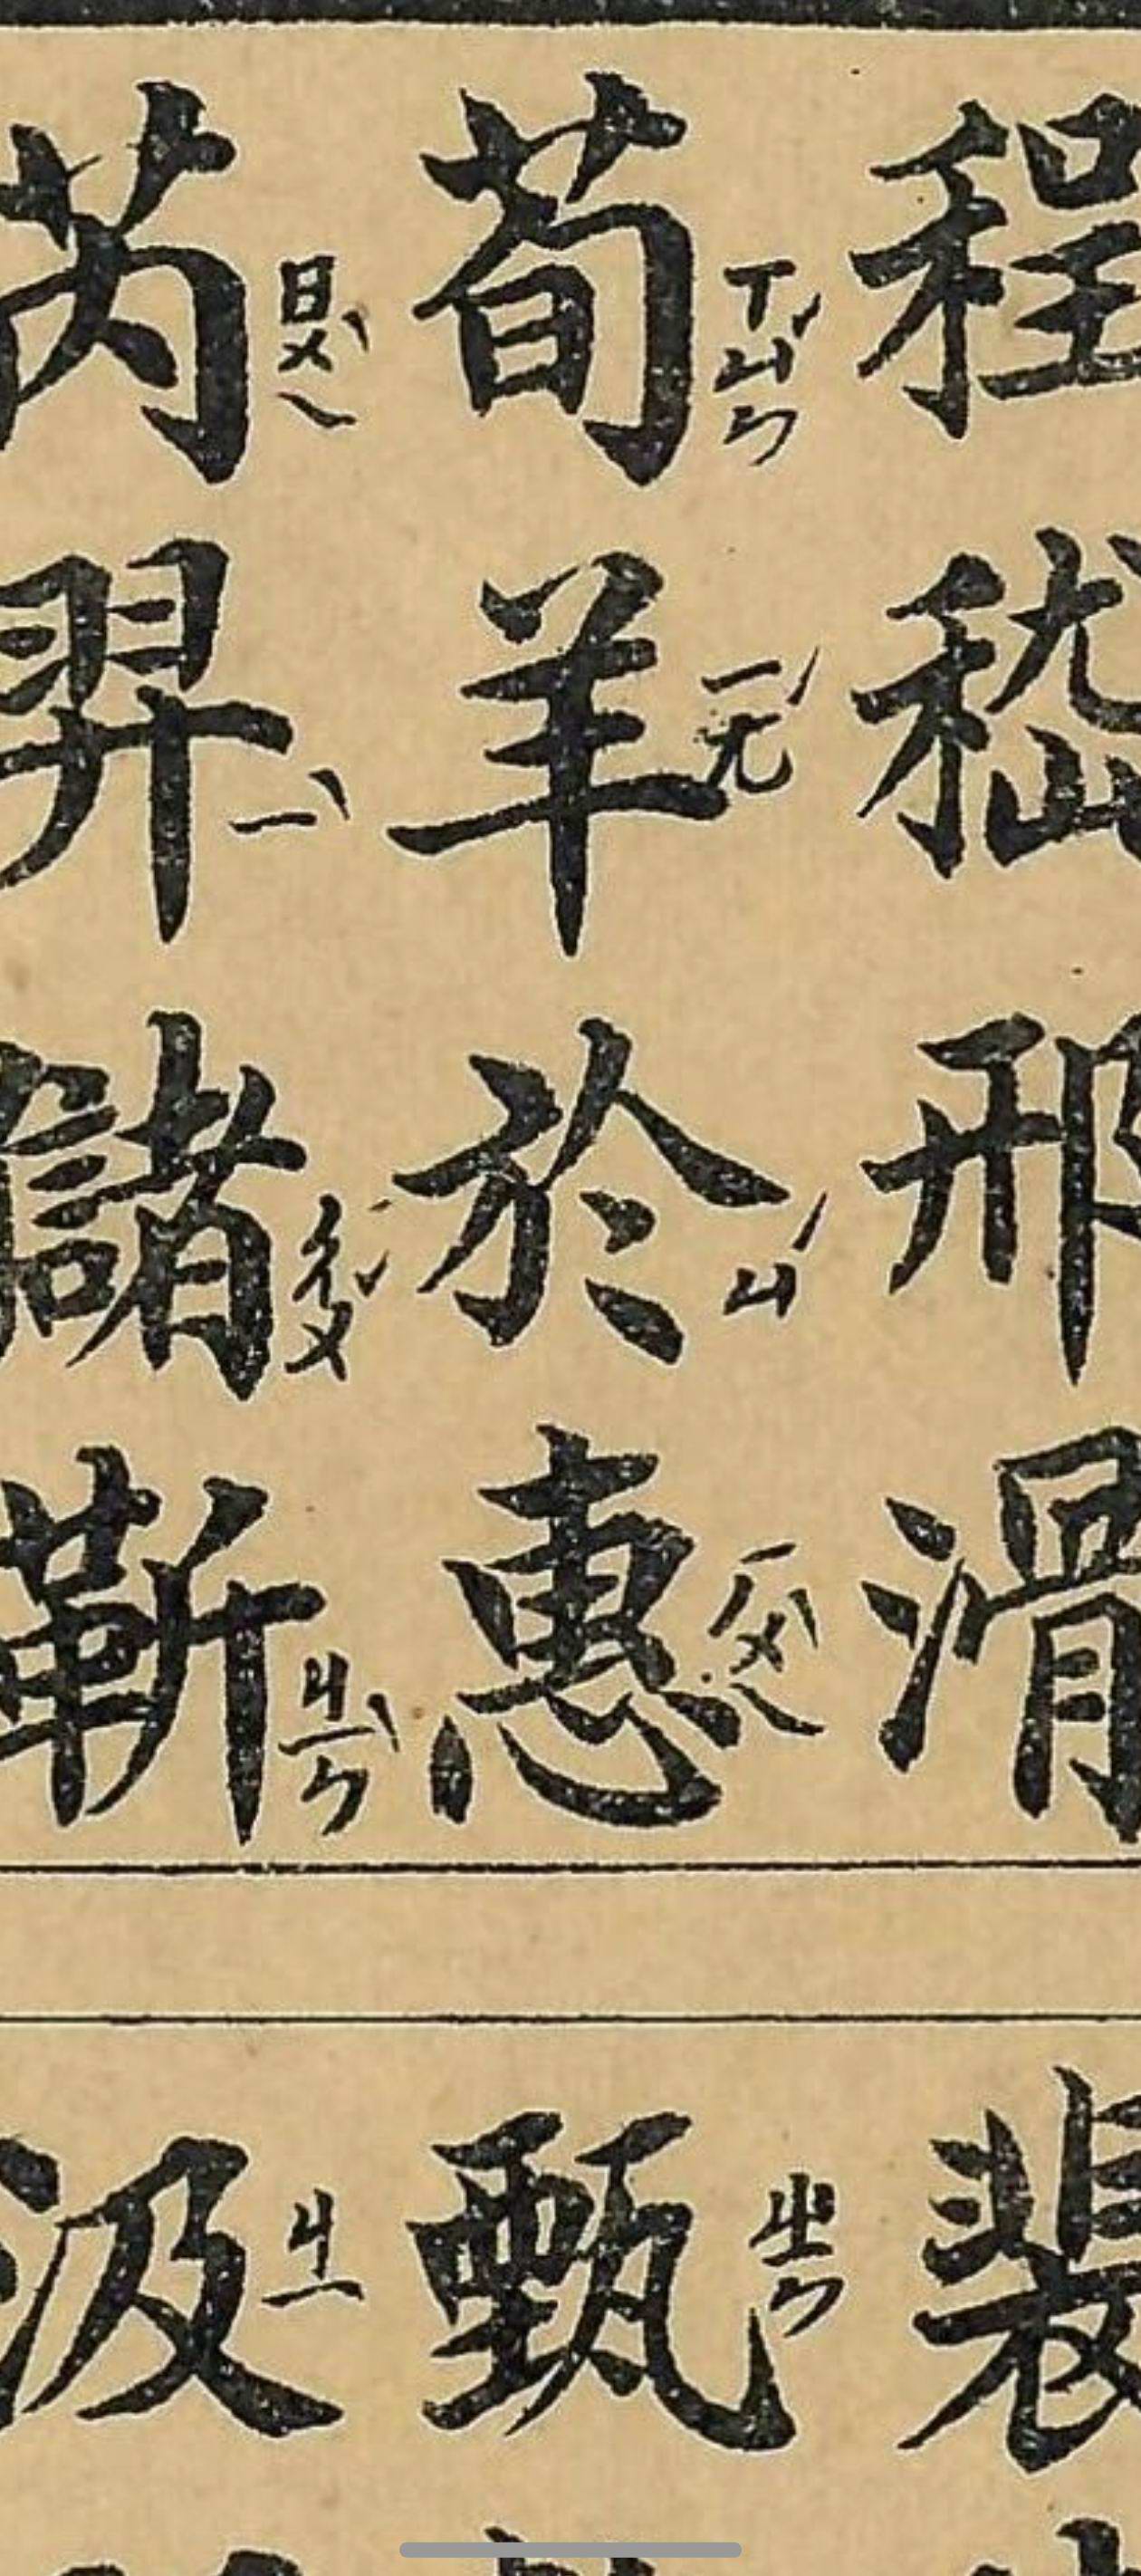 程嵇邢滑
裴
荀ㄒㄩㄣˊ羊ㄧㄤˊ於ㄩˊ惠ㄏㄨㄟˋ
甄ㄓㄣ
芮ㄖㄨㄟˋ羿ㄧˋ儲ㄔㄨˇ靳ㄐㄧㄣˋ
汲ㄐㄧ